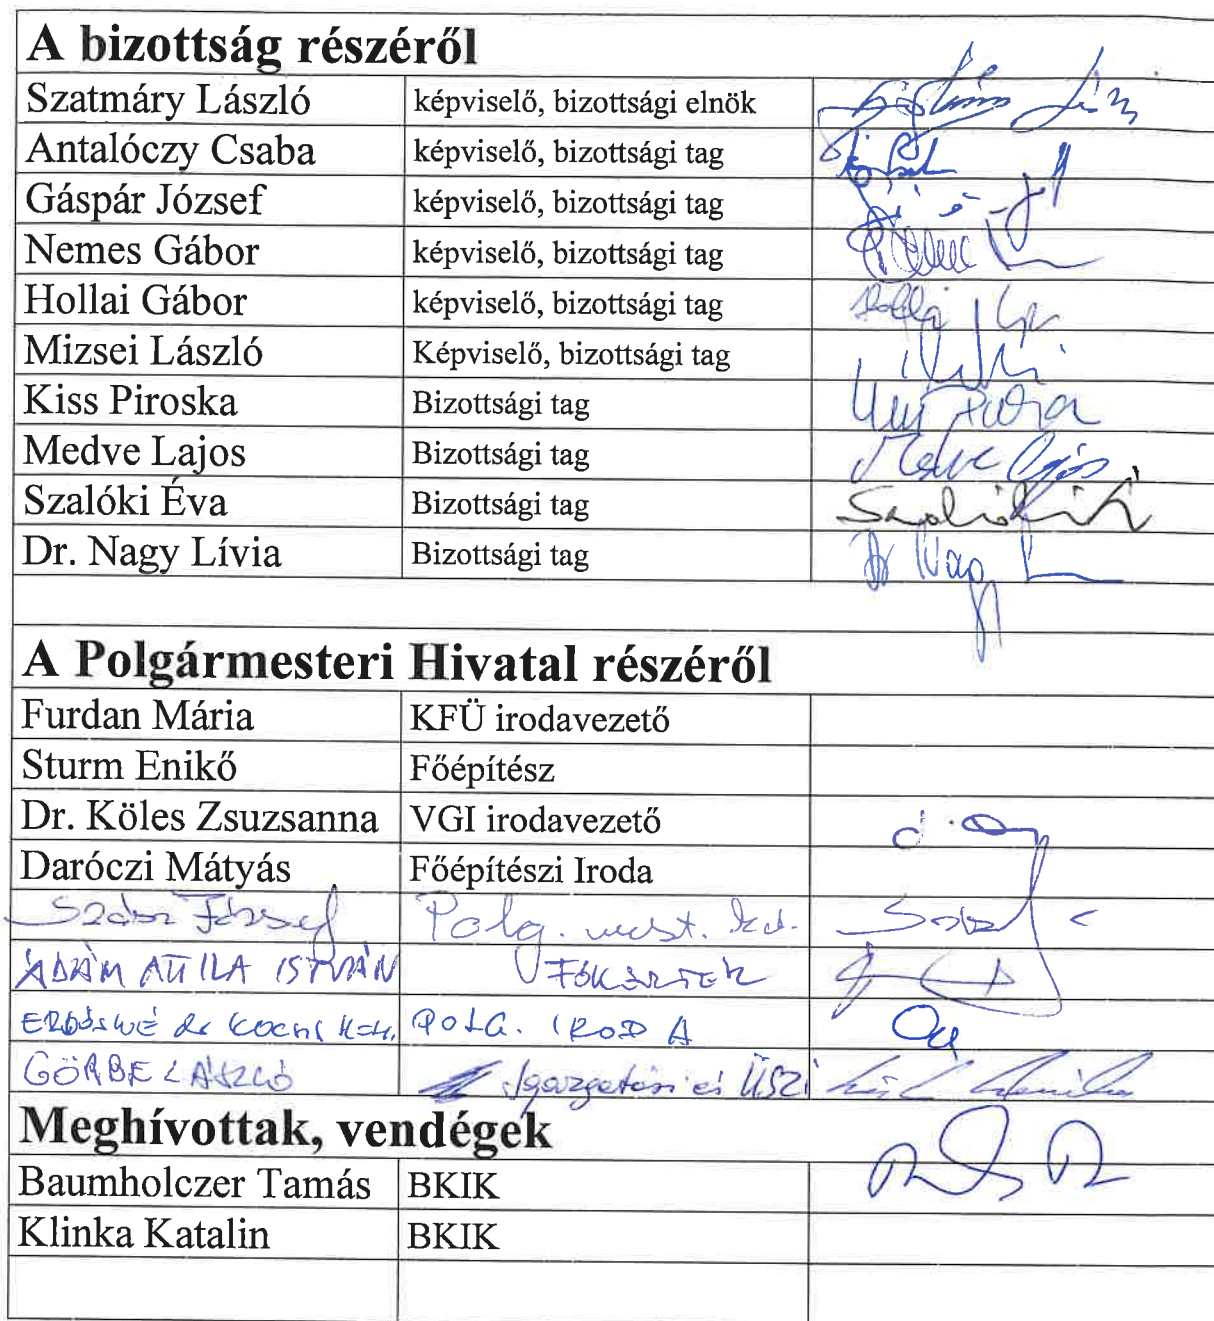 A bizottság részéről
Szatmáry László képviselő, bizottsági elnök
Antalóczy Csaba képviselő, bizottsági tag
Gáspár József képviselő, bizottsági tag
Nemes Gábor képviselő, bizottsági tag
Hollai Gábor képviselő, bizottsági tag
Mizsei László Képviselő, bizottsági tag
Kiss Piroska Bizottsági tag
Medve Lajos Bizottsági tag Medve Lajos
Szalóki Éva Bizottsági tag Szalóki É
Dr. Nagy Lívia Bizottsági tag Dr Nagy L
A Polgármesteri Hivatal részéről
Furdan Mária KFÜ irodavezető
Sturm Enikő Főépítész
Dr. Köles Zsuzsanna VGI irodavezető
Daróczi Mátyás Főépítészi Iroda
Szász József Polg. mest.
ÁDÁM ATTILA ISTVÁN FŐKERTÉSZ
POLG. IRODA
GÖRBE LÁSZLÓ Igazgatási és ÜSZI
Meghívottak, vendégek
Baumholczer Tamás BKIK
Klinka Katalin BKIK